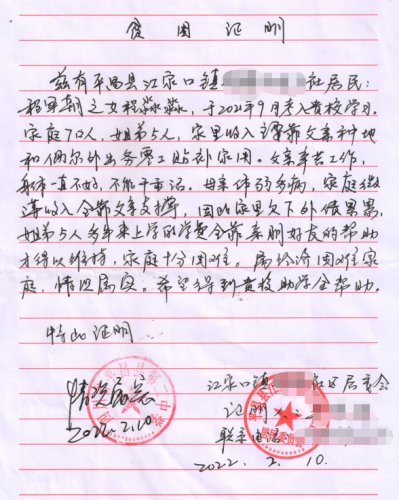 贫困证明
兹有平昌县江家口镇 社居民:
程军朝之女程淼淼,于2021年9月考入贵校学习。
家庭70人,姐弟5人,家里收入 靠父亲种地
和偶尔外出务零工贴补家用。父亲 工作,
身体一直不好,不能干重活。母亲体弱多病,家庭
收入全靠父亲支撑,因此家里欠下外债累累,
姐弟5人多年来上学的学费全靠亲朋好友的帮助
才得以维持,家庭十分困难。属经济困难家
庭,情况属实。希望得到贵校助学金帮助。
特此证明
江家口镇 社区居委会
情况属实
证明
2022.2.10
联系电话
2022.2.10.